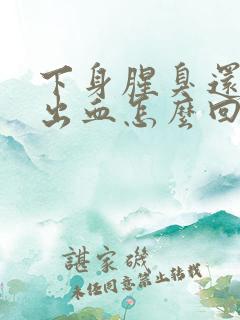 下身腥臭還
出血怎麼回
諶家磯
未经同意禁止转载